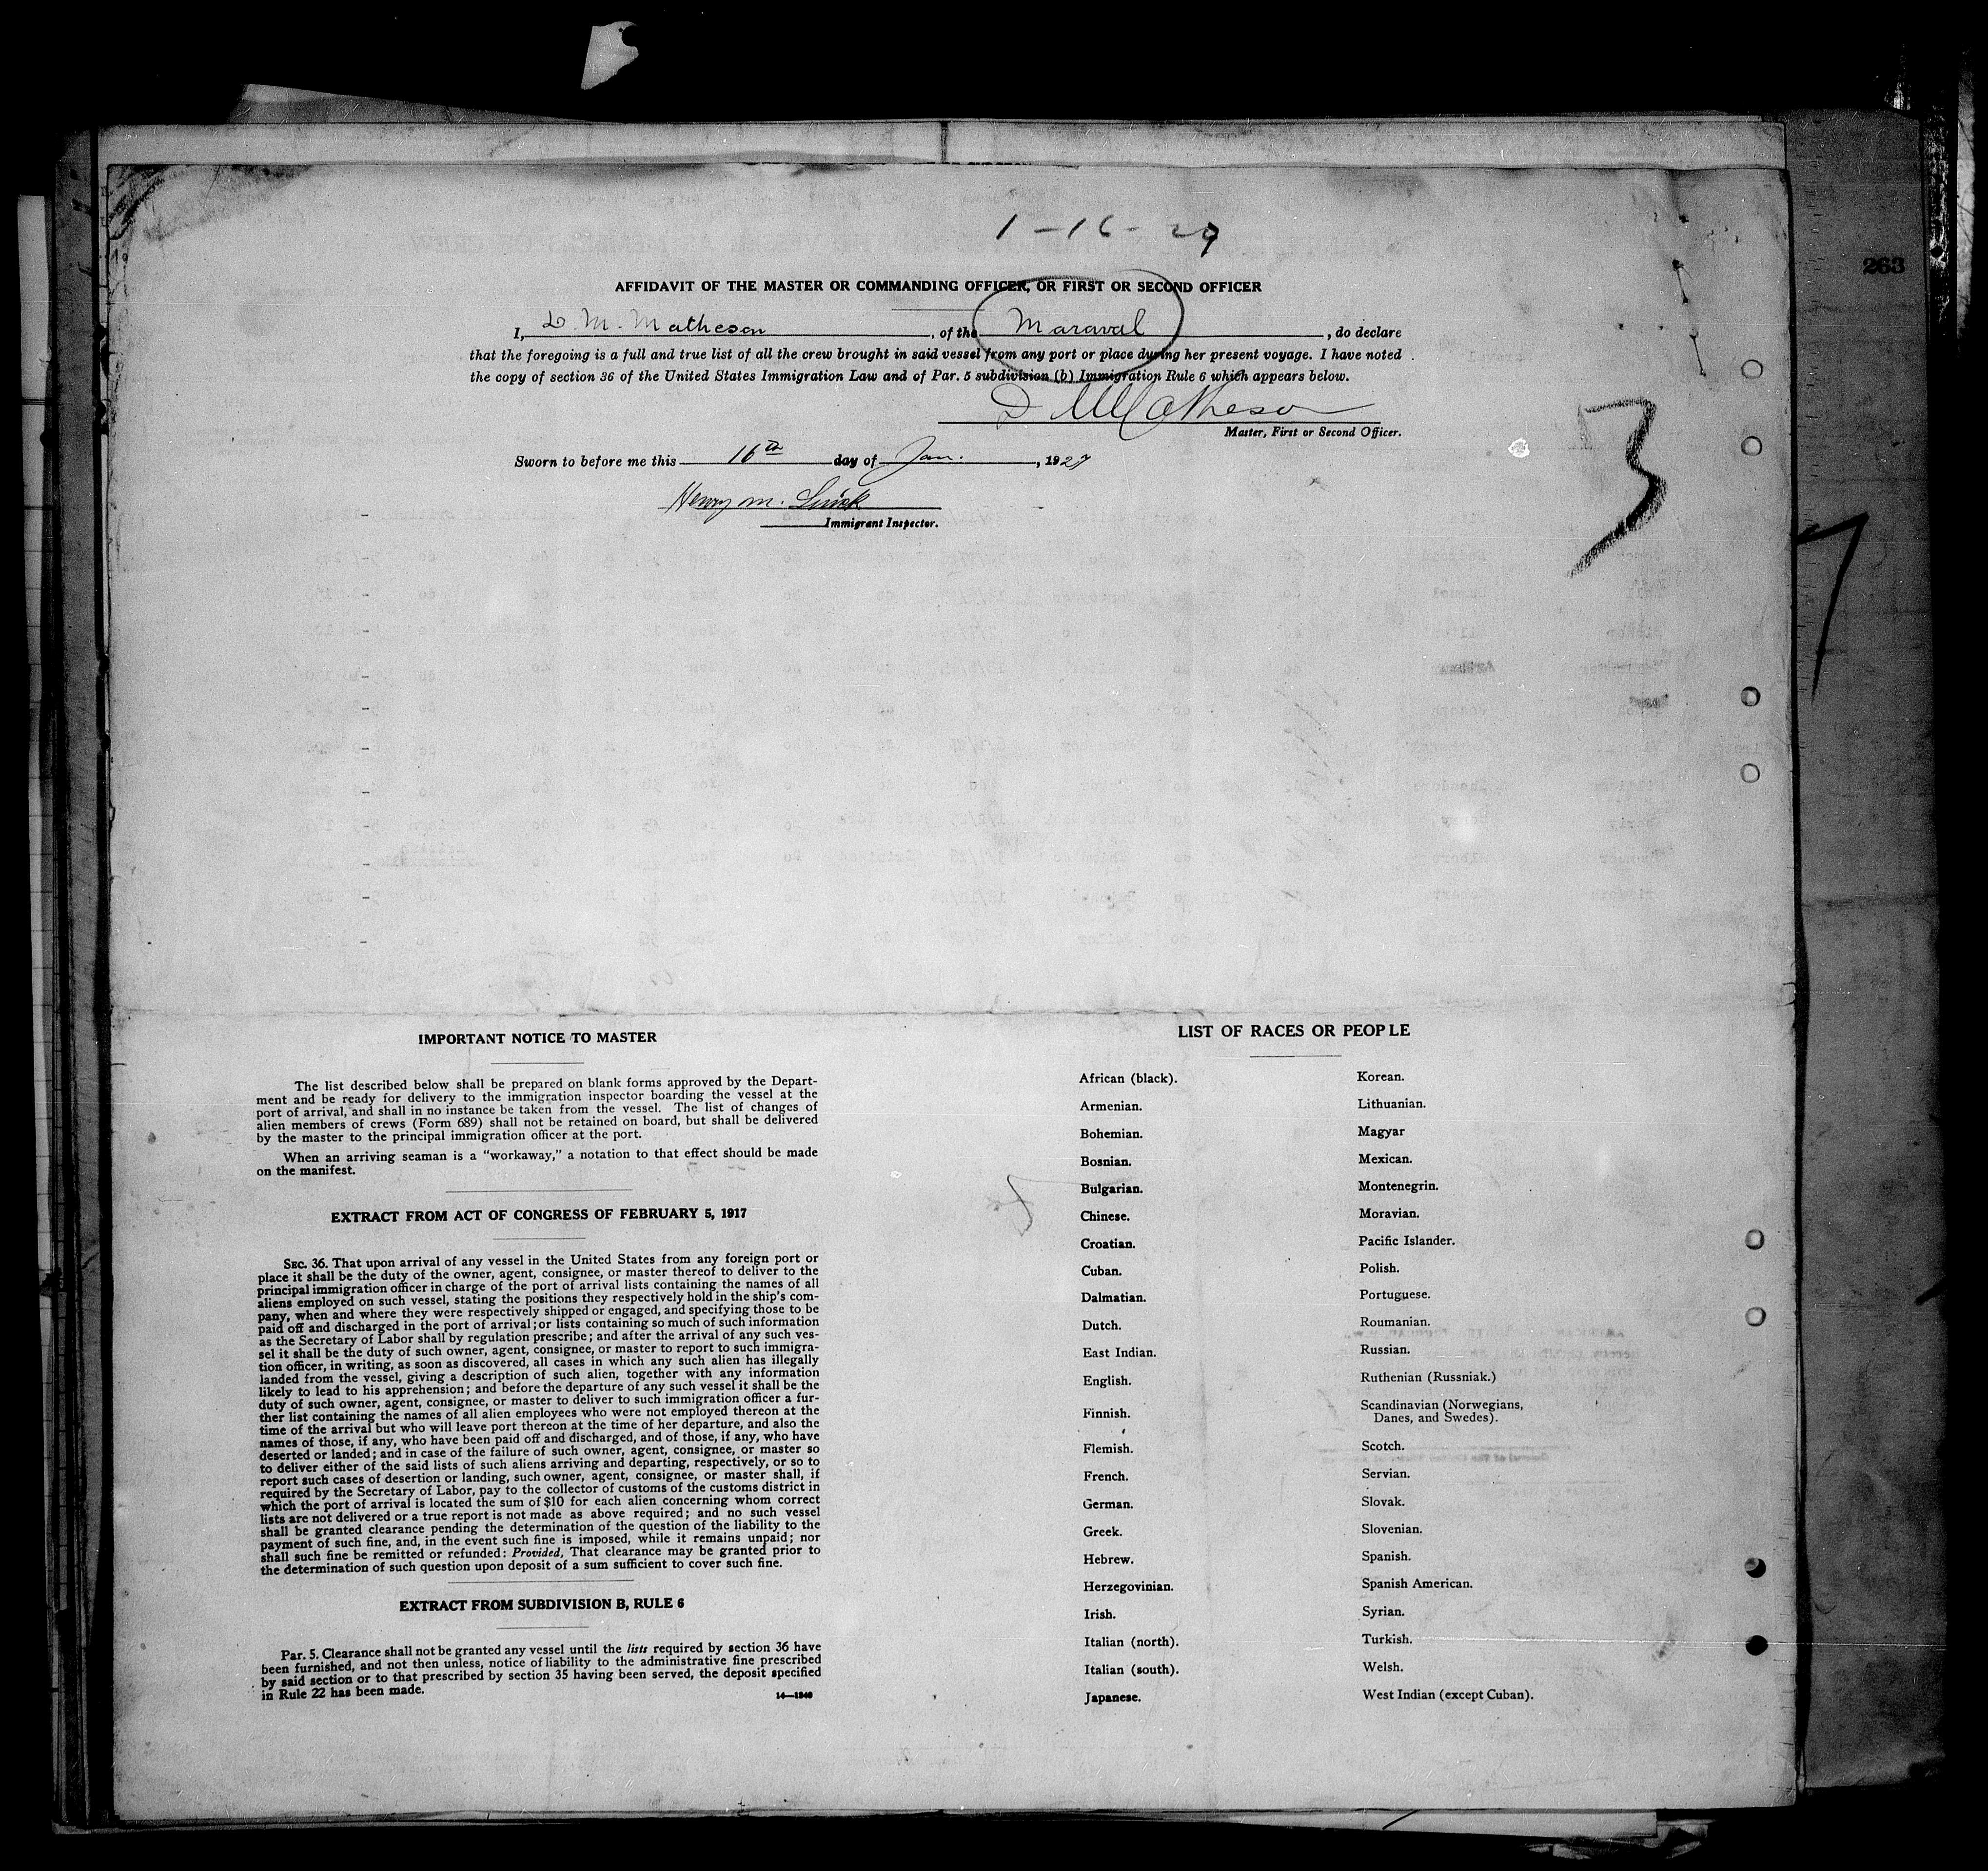 1-16-27
263
AFFIDAVIT OF THE MASTER OR COMMANDING OFFICER, OR FIRST OR SECOND OFFICER
I, D. M. Matheson, of the Maraval, do declare
that the foregoing is a full and true list of all the crew brought in said vessel from any port or place during her present voyage. I have noted
the copy of section 36 of the United States Immigration Law and of Par. 5 subdivision (b) Immigration Rule 6 which appears below.
D M Matheson
Master, First or Second Officer.
3
Sworn to before me this 16th day of Jan., 1927
Henry M.
Immigrant Inspector.
7
IMPORTANT NOTICE TO MASTER
The list described below shall be prepared on blank forms approved by the Depart-
ment and be ready for delivery to the immigration inspector boarding the vessel at the
port of arrival, and shall in no instance be taken from the vessel. The list of changes of
alien members of crews (Form 689) shall not be retained on board, but shall be delivered
by the master to the principal immigration officer at the port.
When an arriving seaman is a "workaway," a notation to that effect should be made
on the manifest.
EXTRACT FROM ACT OF CONGRESS OF FEBRUARY 5, 1917
SEC. 36. That upon arrival of any vessel in the United States from any foreign port or
place it shall be the duty of the owner, agent, consignee, or master thereof to deliver to the
principal immigration officer in charge of the port of arrival lists containing the names of all
aliens employed on such vessel, stating the positions they respectively hold in the ship's com-
pany, when and where they were respectively shipped or engaged, and specifying those to be
paid off and discharged in the port of arrival; or lists containing so much of such information
as the Secretary of Labor shall by regulation prescribe; and after the arrival of any such ves-
sel it shall be the duty of such owner, agent, consignee, or master to report to such immigra-
tion officer, in writing, as soon as discovered, all cases in which any such alien has illegally
landed from the vessel, giving a description of such alien, together with any information
likely to lead to his apprehension; and before the departure of any such vessel it shall be the
duty of such owner, agent, consignee, or master to deliver to such immigration officer a fur-
ther list containing the names of all alien employees who were not employed thereon at the
time of the arrival but who will leave port thereon at the time of her departure, and also the
names of those, if any, who have been paid off and discharged, and of those, if any, who have
deserted or landed; and in case of the failure of such owner, agent, consignee, or master so
to deliver either of the said lists of such aliens arriving and departing, respectively, or so to
report such cases of desertion or landing, such owner, agent, consignee, or master shall, if
required by the Secretary of Labor, pay to the collector of customs of the customs district in
which the port of arrival is located the sum of $10 for each alien concerning whom correct
lists are not delivered or a true report is not made as above required; and no such vessel
shall be granted clearance pending the determination of the question of the liability to the
payment of such fine, and, in the event such fine is imposed, while it remains unpaid; nor
shall such fine be remitted or refunded: Provided, That clearance may be granted prior to
the determination of such question upon deposit of a sum sufficient to cover such fine.
EXTRACT FROM SUBDIVISION B, RULE 6
Par. 5. Clearance shall not be granted any vessel until the lists required by section 36 have
been furnished, and not then unless, notice of liability to the administrative fine prescribed
by said section or to that prescribed by section 35 having been served, the deposit specified
in Rule 22 has been made.
LIST OF RACES OR PEOPLE
African (black).
Armenian.
Bohemian.
Bosnian.
Bulgarian.
Chinese.
Croatian.
Cuban.
Dalmatian.
Dutch.
East Indian.
English.
Finnish.
Flemish.
French.
German.
Greek.
Hebrew.
Herzegovinian.
Irish.
Italian (north).
Italian (south).
Japanese.
Korean.
Lithuanian.
Magyar
Mexican.
Montenegrin.
Moravian.
Pacific Islander.
Polish.
Portuguese.
Roumanian.
Russian.
Ruthenian (Russniak.)
Scandinavian (Norwegians,
Danes, and Swedes).
Scotch.
Servian.
Slovak.
Slovenian.
Spanish.
Spanish American.
Syrian.
Turkish.
Welsh.
West Indian (except Cuban).